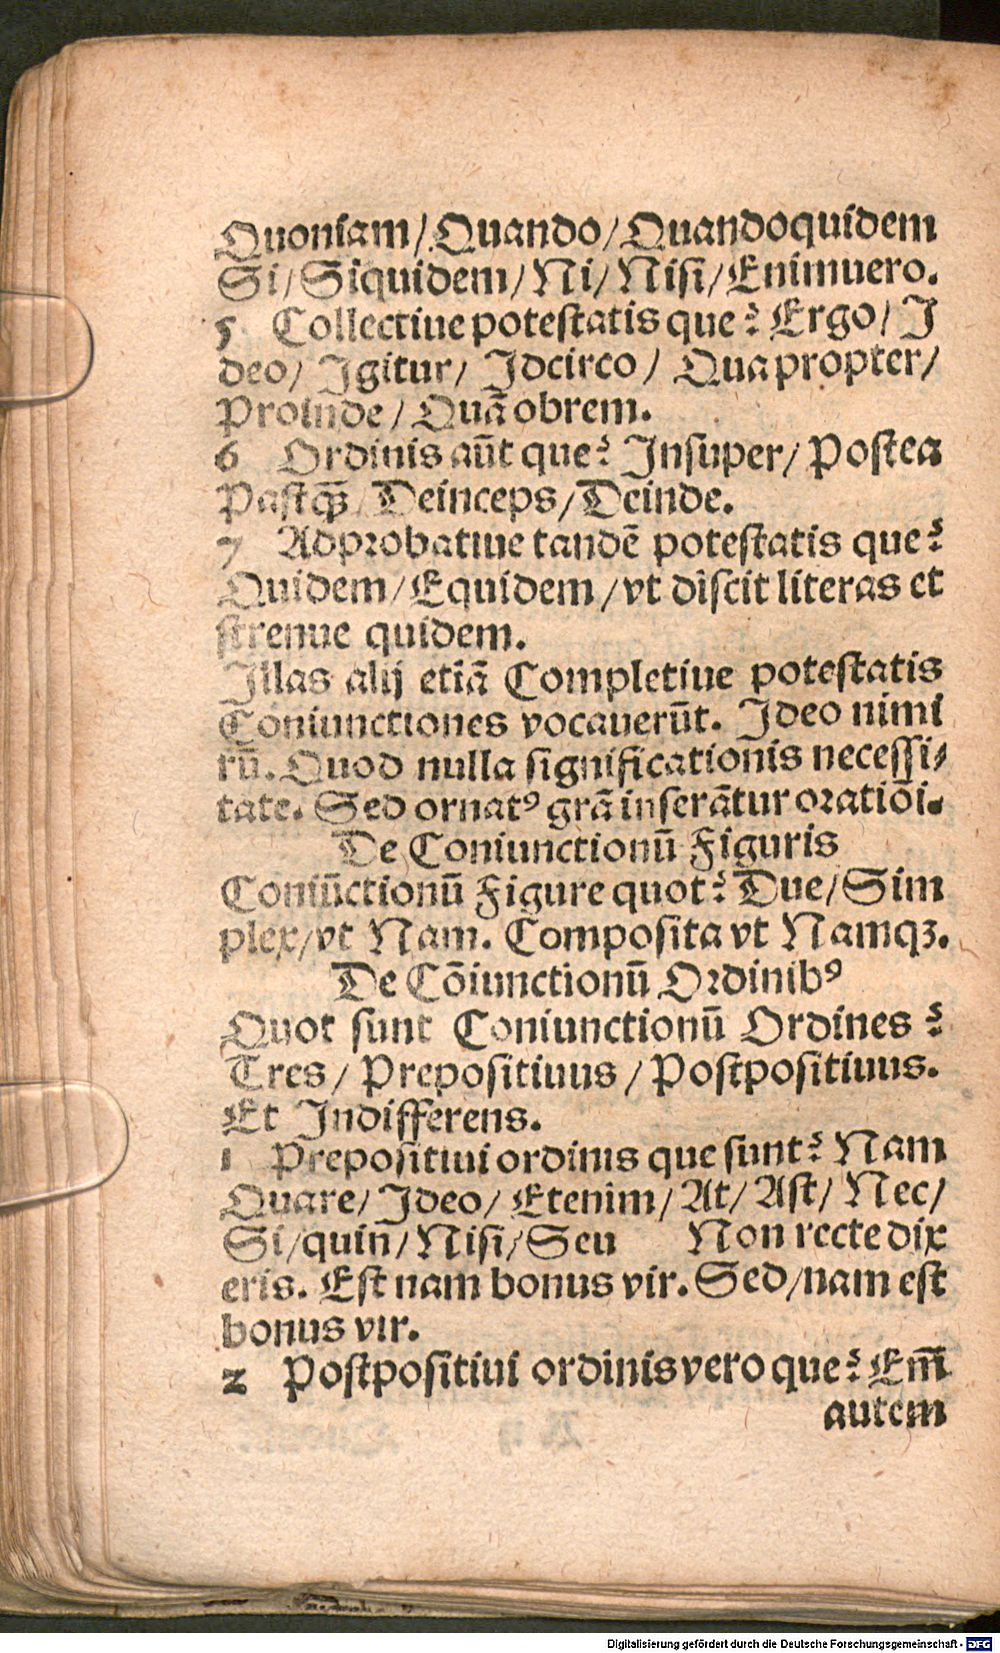 Quoniam/ Quando/ Quandoquidem
Si/ Siquidem/ Ni/ Nisi/ Enimuero.
5 Collectiue potestatis que? Ergo/ I
deo/ Igitur/ Idcirco/ Quapropter/
Proinde/ Quā obrem.
6 Ordinis aūt que? Insuper/ Postea
Pastꝙ̄ Deinceps/ Deinde.
7 Adprobatiue tandē potestatis que?
Quidem/ Equidem/ vt discit literas et
strenue quidem.
Illas alij etiā Completiue potestatis
Coniunctiones vocauerūt. Ideo nimi
rū. Quod nulla significationis necessi/
tate. Sed ornatꝰ grā inserātur oratiōi.
De Coniunctionū Figuris
Coniūctionū Figure quot? Due/ Sim
plex/ vt Nam. Composita vt Namqꝫ.
De Cōiunctionū Ordinibꝰ
Quot sunt Coniunctionū Ordines?
Tres/ Prepositiuus/ Postpositiuus.
Et Indifferens.
1 Prepositiui ordinis que sunt? Nam
Quare/ Ideo/ Etenim/ At/ Ast/ Nec/
Si/ quin̄/ Nisi/ Seu Non recte dix
eris. Est nam bonus vir. Sed/ nam est
bonus vir.
2 Postpositiui ordinis vero que? Em̄
autem
Digitalisierung gefördert durch die Deutsche Forschungsgemeinschaft - DFG